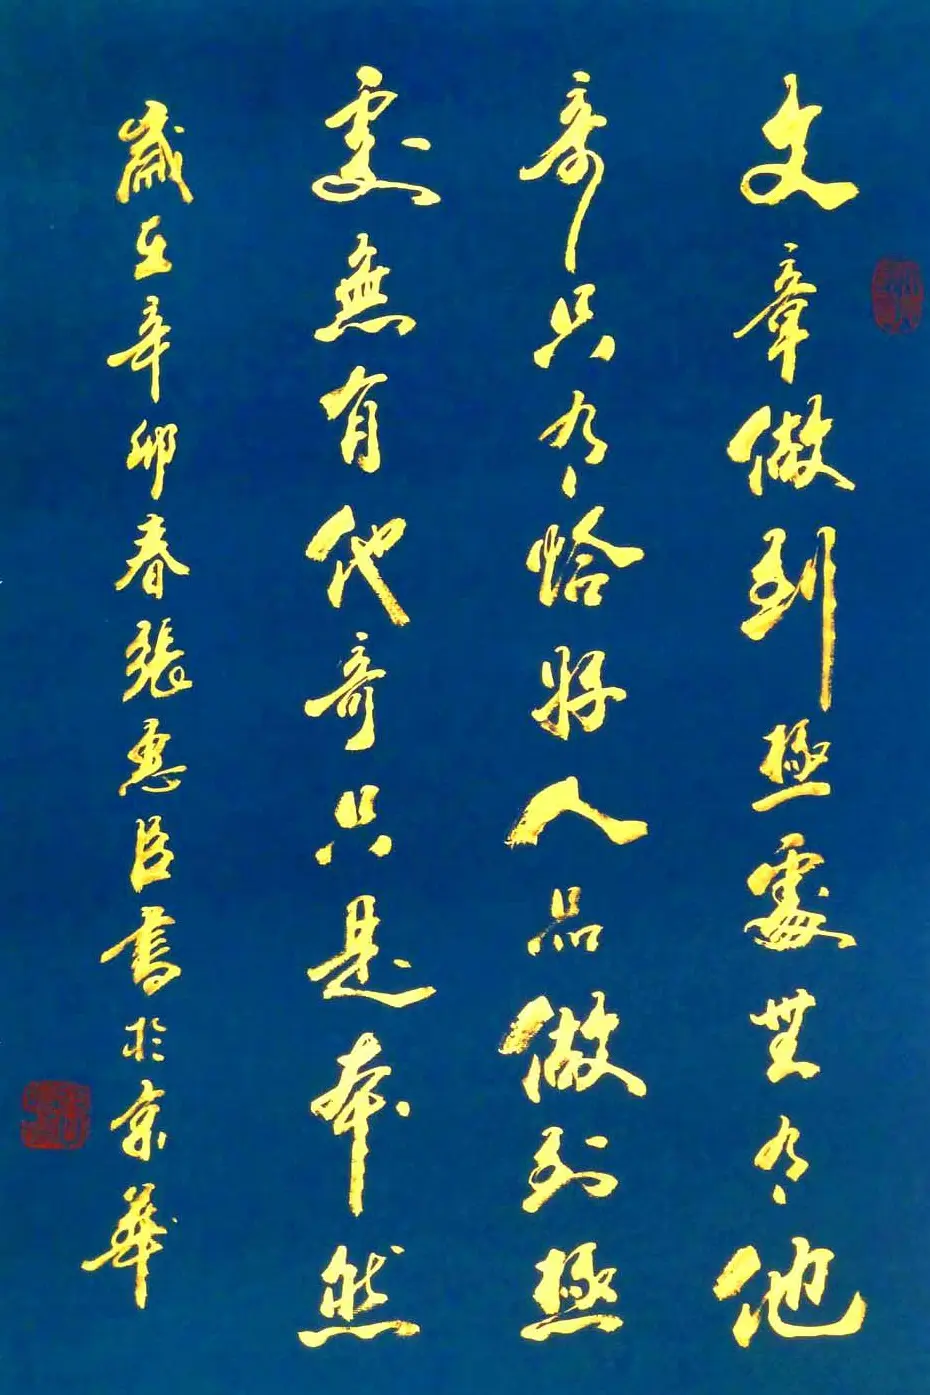 文章做到極處無有他
奇只有恰好人品做到極
處無有他奇只是本然
歲在辛卯春張惠臣書於京華